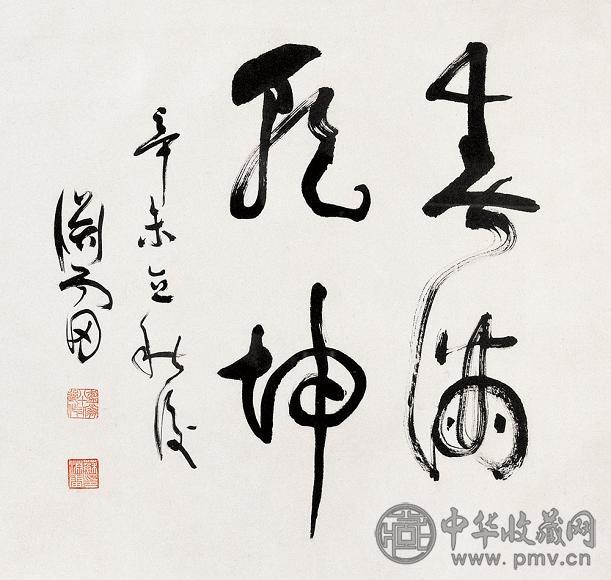 春滿
乾坤
辛未立秋後
中华收藏网
www.pmv.cn